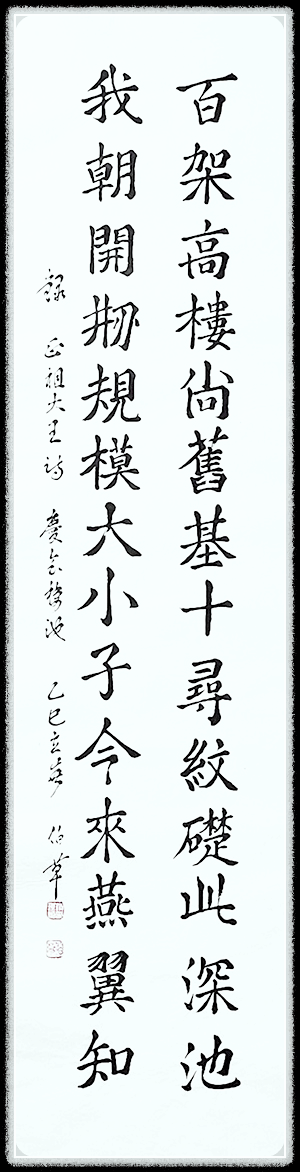 百架高樓尙舊基十尋紋礎此深池
我朝開刱規模大小子今來燕翼知
錄 正祖大王詩 慶會樓池 乙巳立春 伯草